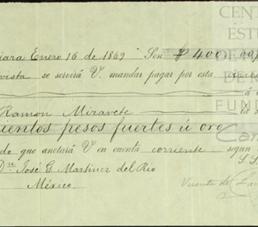 CEN
EST
DE
iara Enero 16 de 1869 Son $ 400.00
vista se servirá V. mandar pagar por esta
Ramon Miravete
FUND
cientos pesos fuertes ú oro
do que anotará V en cuenta corriente segun
S.S.
Dn. José G. Martinez del Rio
México
Vicente de